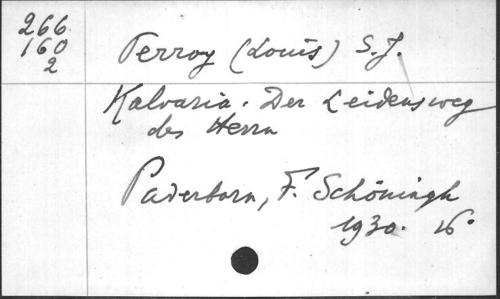 266
160
2
Perroy (Louis) S.J.
Kalvaria. Der Leidensweg
des Herrn
Paderborn, F. Schöningh
1930. 16°